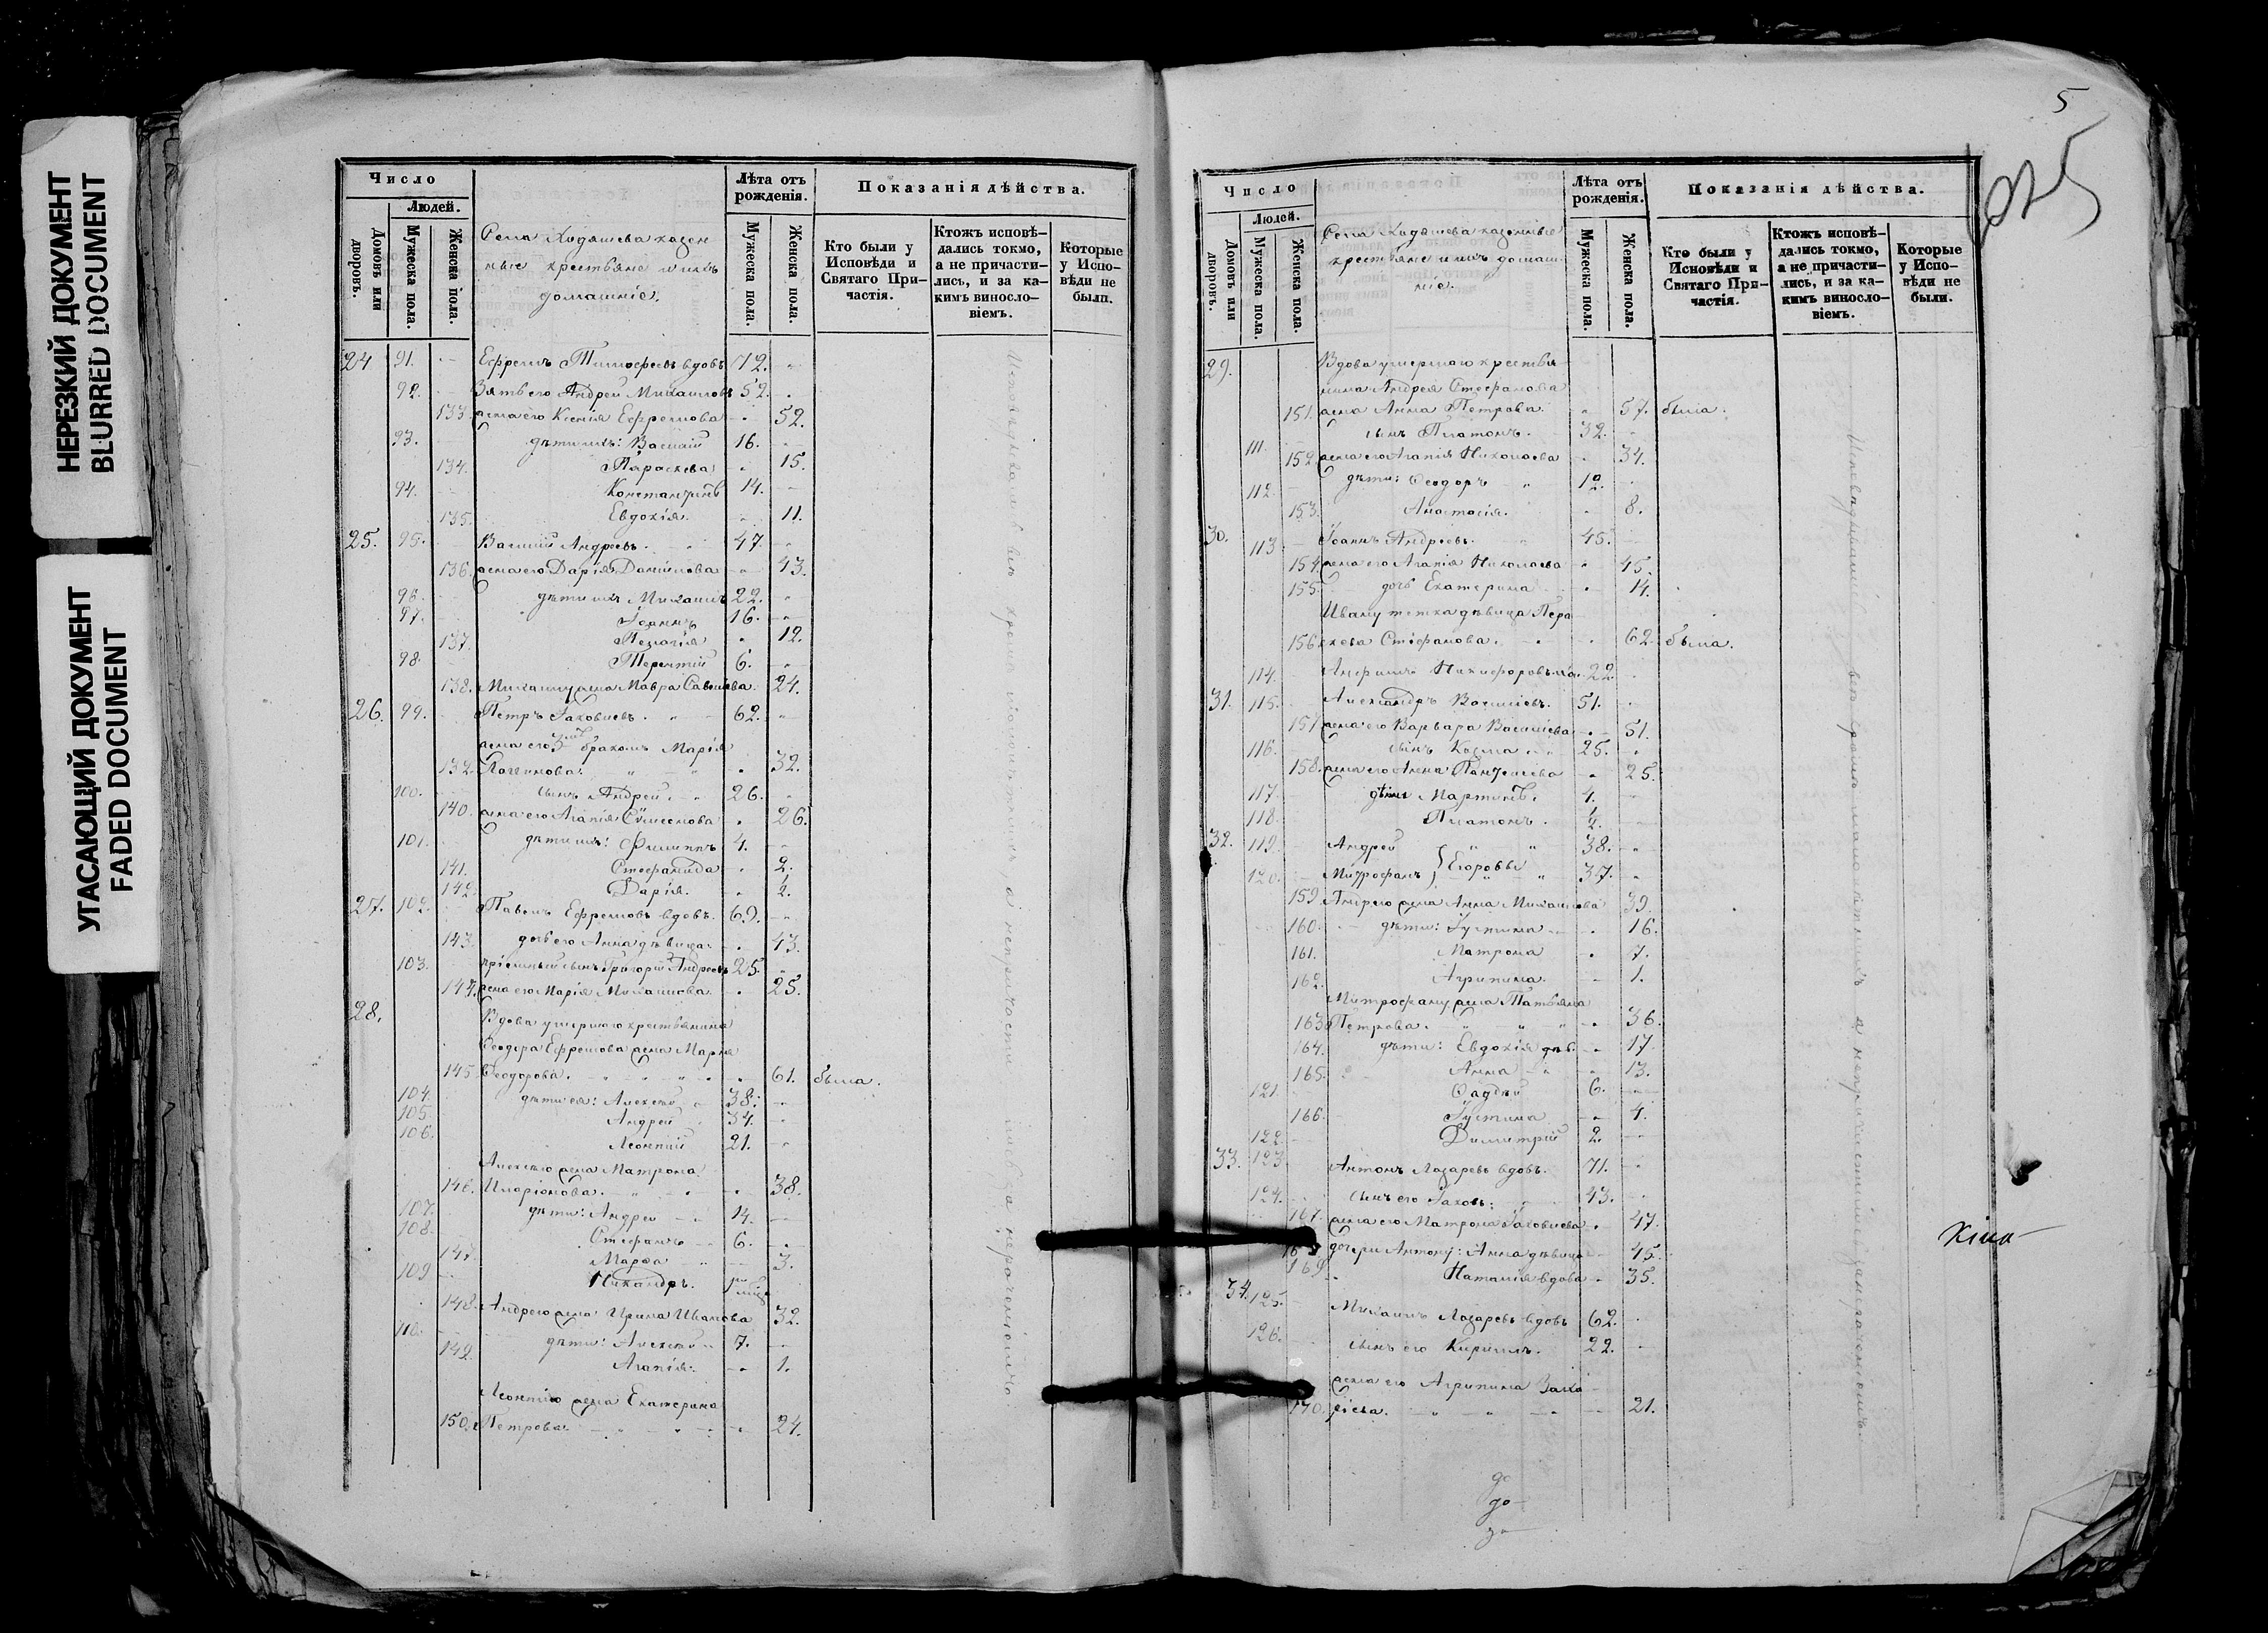 НЕРЕЗКИЙ ДОКУМЕНТ
BLURRED DOCUMENT
УГАСАЮЩИЙ ДОКУМЕНТ
FADED DOCUMENT
Число
Людей.
Домовъ или дворовъ.
Мужеска пола.
Женска пола.
Села Ходяшева казен
ные крестьяне и ихъ
домашніе.
Лѣта отъ рожденія.
Мужеска пола.
Женска пола.
Показанія дѣйства.
Кто были у Исповѣди и Святаго Причастія.
Ктожъ исповѣдались токмо, а не причастились, и за какимъ винословіемъ.
Которые у Исповѣди не были.
24 91. Ефремъ Тимофеевъ вдовъ 72.
92. Зять его Андрей Михаиловъ 52.
133. жена его Ксенія Ефремова 52.
93. дѣти ихъ: Василій 16.
134. Параскева 15.
94. Константинъ 14.
135. Евдокія. 11.
25. 95. Василій Андреевъ. 47.
136. жена его Дарія Даніилова 43.
96. дѣти ихъ Михаилъ 22.
97. Іоаннъ 16.
137. Пелагія 12.
98. Терентій 6.
138. Михаилу жена Мавра Савельева. 24.
26. 99. Петръ Іаковлевъ. 62.
жена его 3мъ бракомъ Марія
139. 32.
100. сынъ Андрей. 26.
140. жена его Агапія Сѵмеонова 26.
101. дѣти ихъ: Филиппъ 4.
141. Стефанида 2.
142. Дарія.
27. 102. Павелъ Ефремовъ вдовъ. 69.
143. дочь его Анна дѣвица. 43.
103. пріемный сынъ Григорій Андреевъ 25.
144. жена его Марія Михаилова. 25.
28. Вдова умершаго крестьянина
Ѳеодора Ефремова жена Марія
145 Ѳеодорова. 61. была.
104. дѣти ея: Алексѣй 38.
105. Андрей 34.
106. Леонтій 21.
Алексѣю жена Матрона
146. Иларіонова. 38.
107. дѣти: Андрей 14.
108. Стефанъ 6.
147. Марѳа 3.
109 Никандръ.
148. Андрею жена Ирина Иванова 32.
110. дѣти: Алексѣй 7.
149. Агапія. 1.
Леонтію жена Екатерина
150. Петрова. 24.
5
Число
Людей.
Домовъ или дворовъ.
Мужеска пола.
Женска пола.
Села Ходяшева казенные
крестьяне и ихъ домаш
ніе.
Лѣта отъ рожденія.
Мужеска пола.
Женска пола.
Показанія дѣйства.
Кто были у Исповѣди и Святаго Причастія.
Ктожъ исповѣдались токмо, а не причастились, и за какимъ винословіемъ.
Которые у Исповѣди не были.
29. Вдова умершаго крестья
нина Андрея Стефанова
151. жена Анна Петрова. 57. была.
111. сынъ Платонъ. 32.
152. жена его Агапія Николаева 34.
112. дѣти: Ѳеодоръ 12.
153. Анастасія. 8.
30. 113. Іоаннъ Андреевъ. 45.
154. жена его Агапія Николаева 45.
155. дочь Екатерина 14.
Ивану тетка дѣвица Пара
156. скева Стефанова. 62. была.
114. Никифоровъ 22
31. 115. Александръ Васильевъ. 51.
157. жена его Варвара Васильева 51.
116. сынъ Козма 25.
158. жена его Анна 25.
117 дѣти Мартинъ. 4.
118. Платонъ.
32. 119. Андрей 38.
120. Митрофанъ } Егоровы 37.
159. Андрею жена Анна Михаилова 39.
160. дѣти: Іустина 16.
161. Матрона 7.
162. Агрипина. 1.
Митрофану жена Татьяна
163. Петрова. 36.
164. дѣти: Евдокія дѣв. 17.
165. Анна 13.
121. Ѳаддей 6.
166. Іустина 4.
122. Димитрій 2.
33. 123 Антонъ Лазаревъ вдовъ. 71.
124. сынъ его Іаковъ. 43.
167. жена его Матрона Іаковлева. 47.
168 дочери Антону: Анна дѣвица 45.
169. Наталія вдова 35.
34. 125. Михаилъ Лазаревъ вдовъ 62.
126. сынъ его Кириллъ. 22.
жена его Агрипина Заха
170. ріева. 21.
до
до